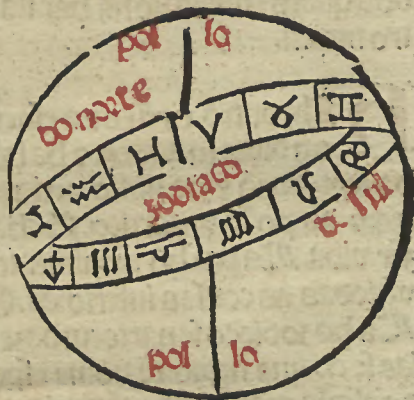 pol lo
do norte
♑ ♒ ♓ ♈ ♉ ♊
zodiaco
♐ ♏ ♎ ♍ ♌ ♋
ſul
pol lo